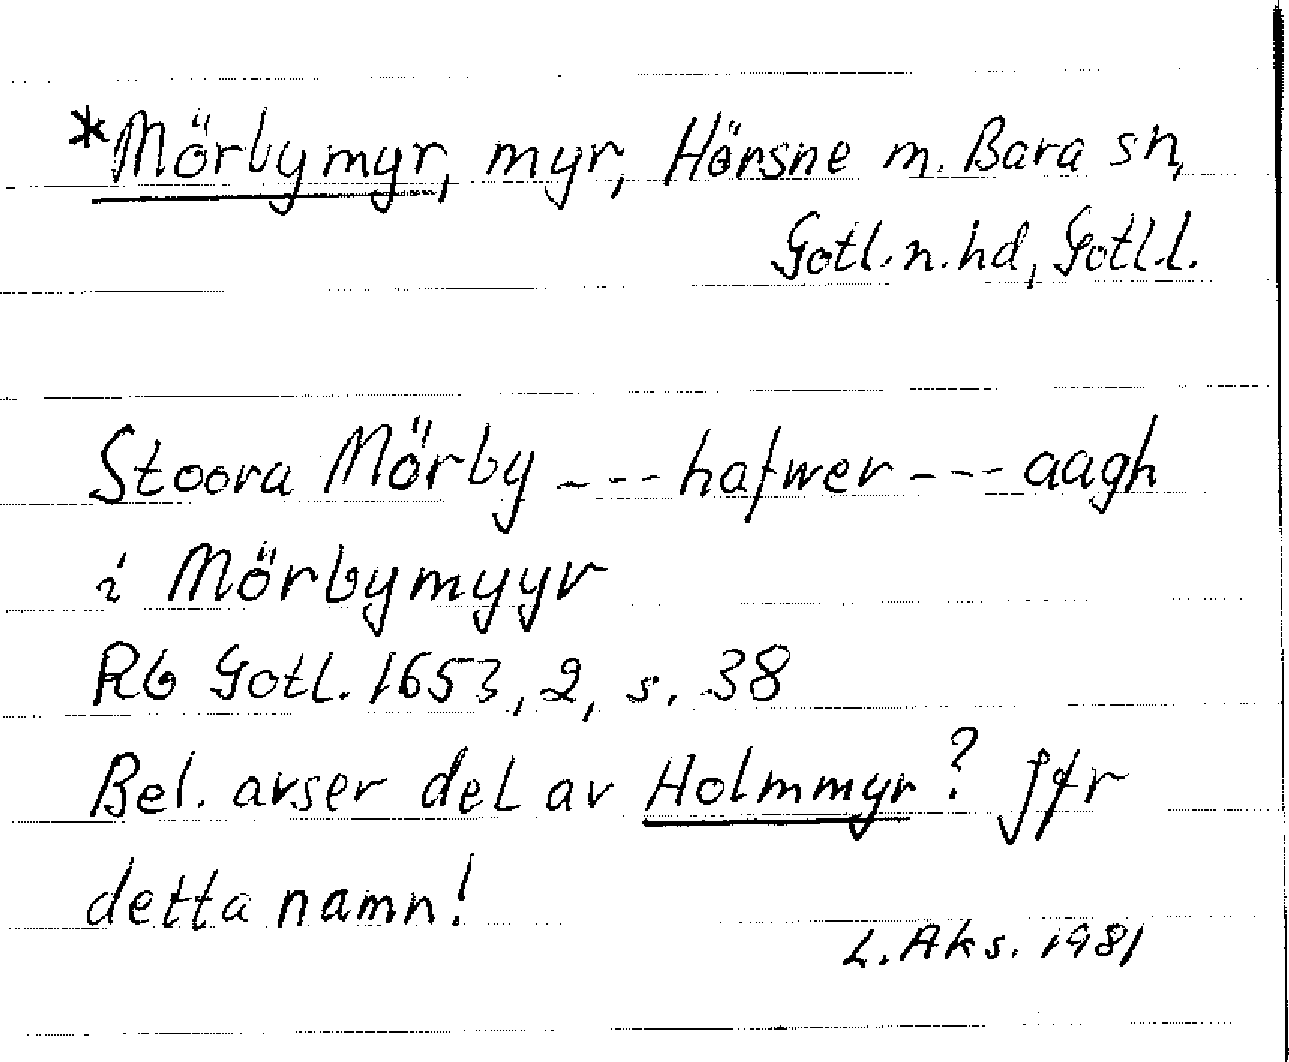 *Mörbymyr, myr, Hörsne m. Bara sn,
Gotl. n. hd, Gotl.l.
Stoora Mörby --- hafwer --- aagh
i Mörbymyyr
RB Gotl. 1653, 2, s. 38
Bel. avser del av Holmmyr? Jfr
detta namn!
L. Aks. 1981